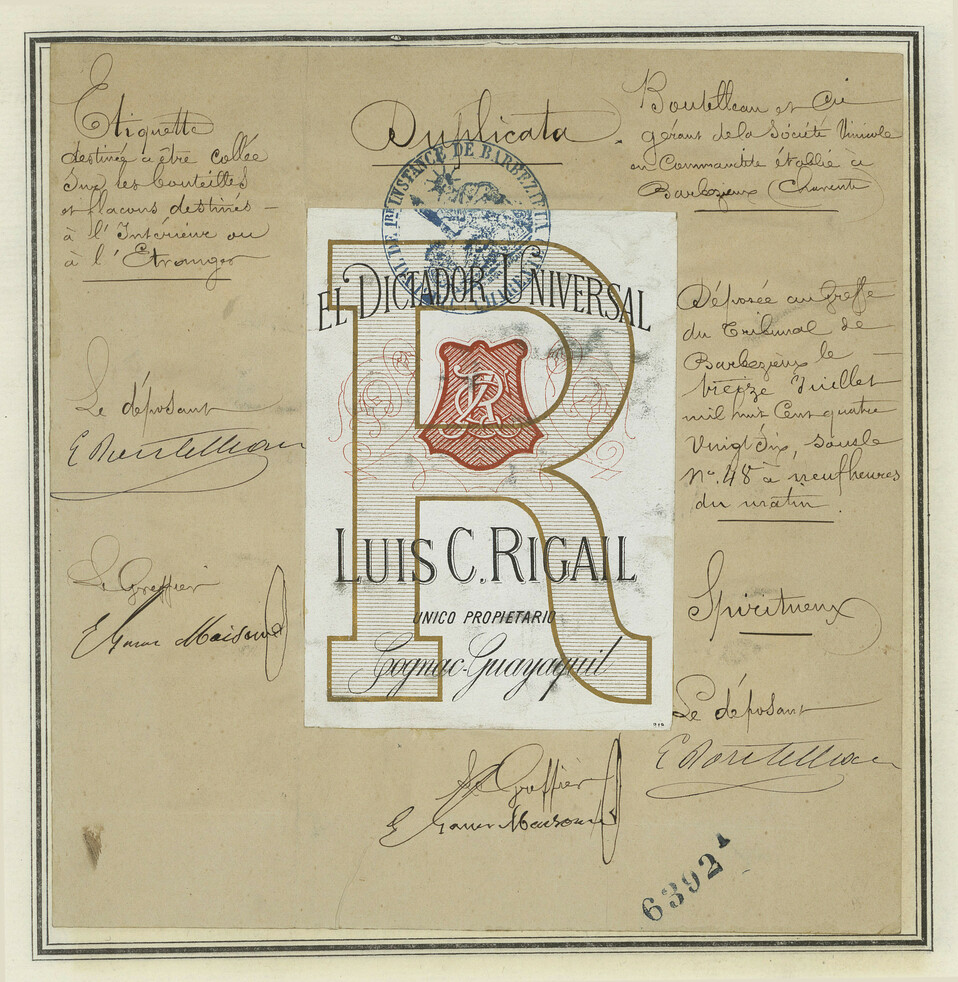 Etiquette
destinée à être collée
sur les bouteilles
et flacons destinés
à l'Intérieur ou
à l'Etranger
Duplicata
Boutelleau et Cie
gérant de la Société Vinicole
en Commandite établie à
Barbezieux (Charente
INSTANCE DE BARBEZIEUX
EL DICTADOR UNIVERSAL
LUIS C. RIGAIL
UNICO PROPIETARIO
Cognac-Guayaquil
Déposée au Greffe
du Tribunal de
Barbezieux le
treize Juillet
mil huit Cent quatre
Vingt Dix, sous le
N°. 48 à neuf heures
du matin.
Spiritueux
Le déposant
E Boutelleau
Le Greffier
Le déposant
E Boutelleau
Le Greffier
6392